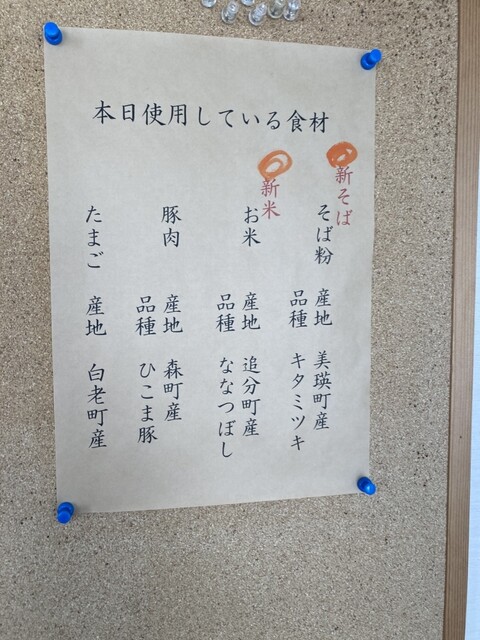 本日使用している食材
新そば
そば粉 産地 美瑛町産
品種 キタミツキ
新米
お米 産地 追分町産
品種 ななつぼし
豚肉 産地 森町産
品種 ひこま豚
たまご 産地 白老町産